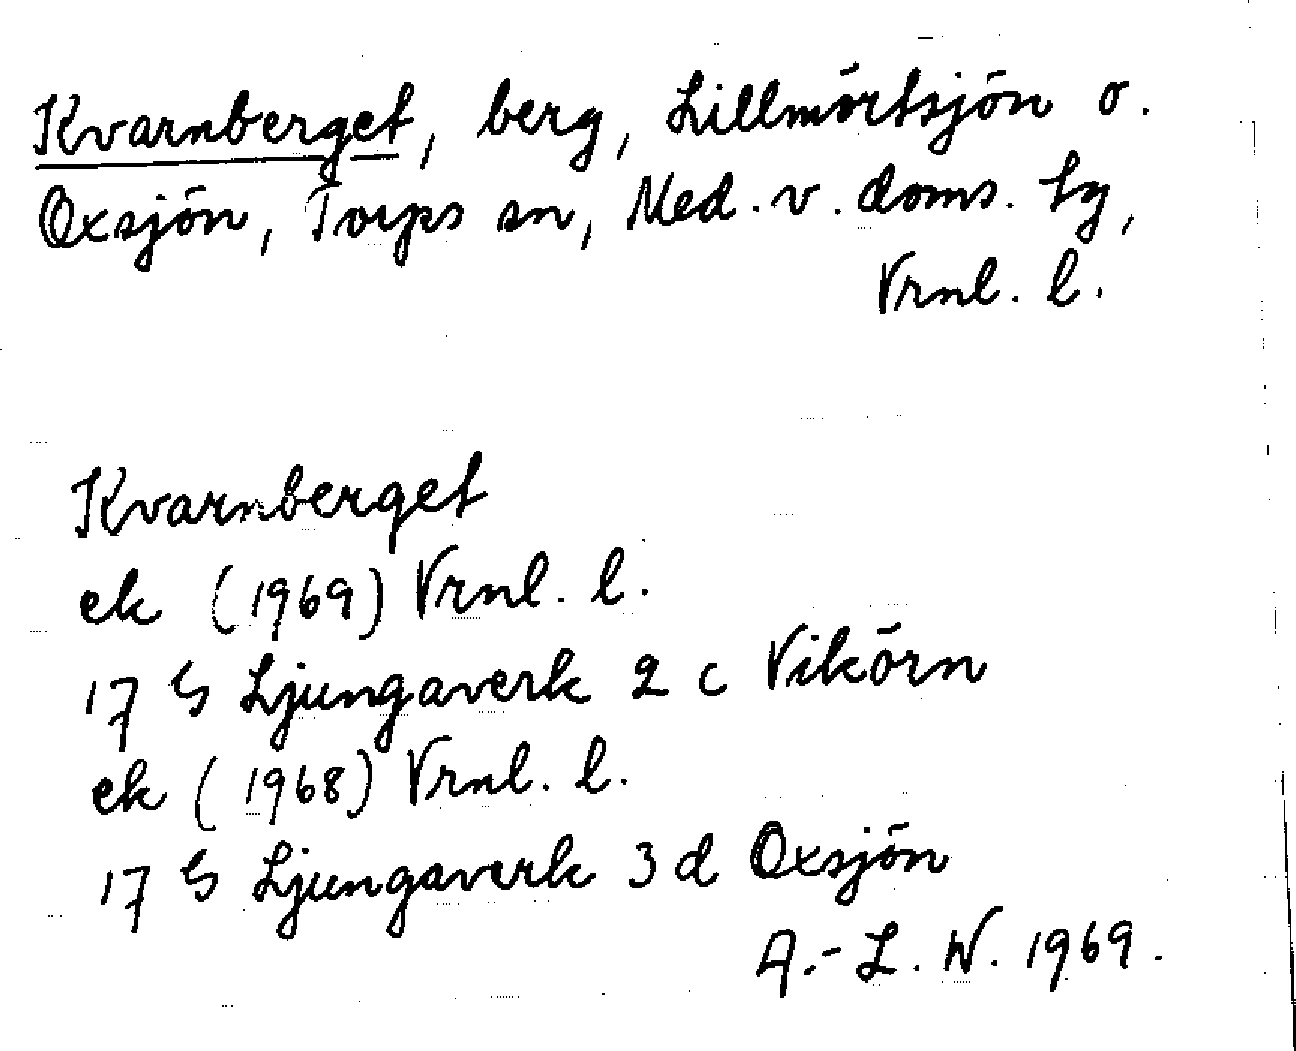 Kvarnberget, berg, Lillmörtsjön o.
Oxsjön, Torps sn, Med. v. doms. hg,
Vrnl. l.
Kvarnberget
ek (1969) Vrnl. l.
17 G Ljungaverk 2 c Vikörn
ek (1968) Vrnl. l.
17 G Ljungaverk 3 d Oxsjön
A.-L. W. 1969.